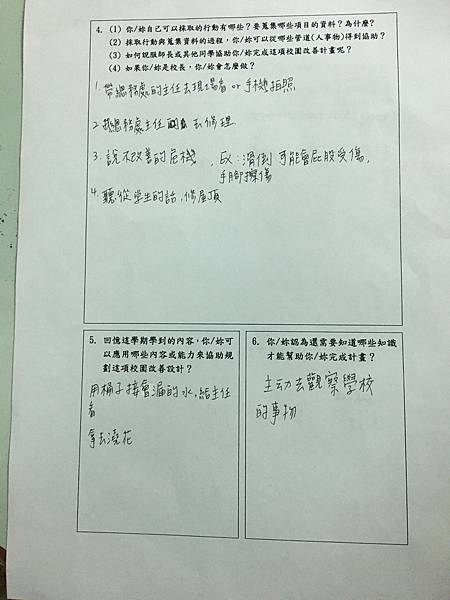 4. (1) 你/妳自己可以採取的行動有哪些？要蒐集哪些項目的資料？為什麼？
(2) 採取行動與蒐集資料的過程，你/妳可以從哪些管道(人事物)得到協助？
(3) 如何說服師長或其他同學協助你/妳完成這項校園改善計畫呢？
(4) 如果你/妳是校長，你/妳會怎麼做？
1. 帶總務處的主任去現場看 or 手機拍照
2. 總務處主任 去修理
3. 說不改善的危機，EX：滑倒 可能會屁股受傷，
手腳擦傷
4. 聽從學生的話，修屋頂
5. 回憶這學期學到的內容，你/妳可
以應用哪些內容或能力來協助規
劃這項校園改善設計？
用桶子接會漏的水，給主任
看
拿去澆花
6. 你/妳認為還需要知道哪些知識
才能幫助你/妳完成計畫？
主动去觀察學校
的事物